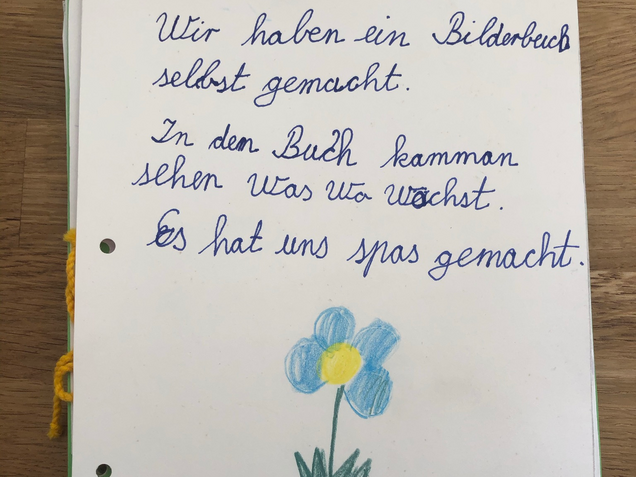 Wir haben ein Bilderbuch
selbst gemacht.
In dem Buch kamman
sehen Was Wo Wachst.
Es hat uns spas gemacht.